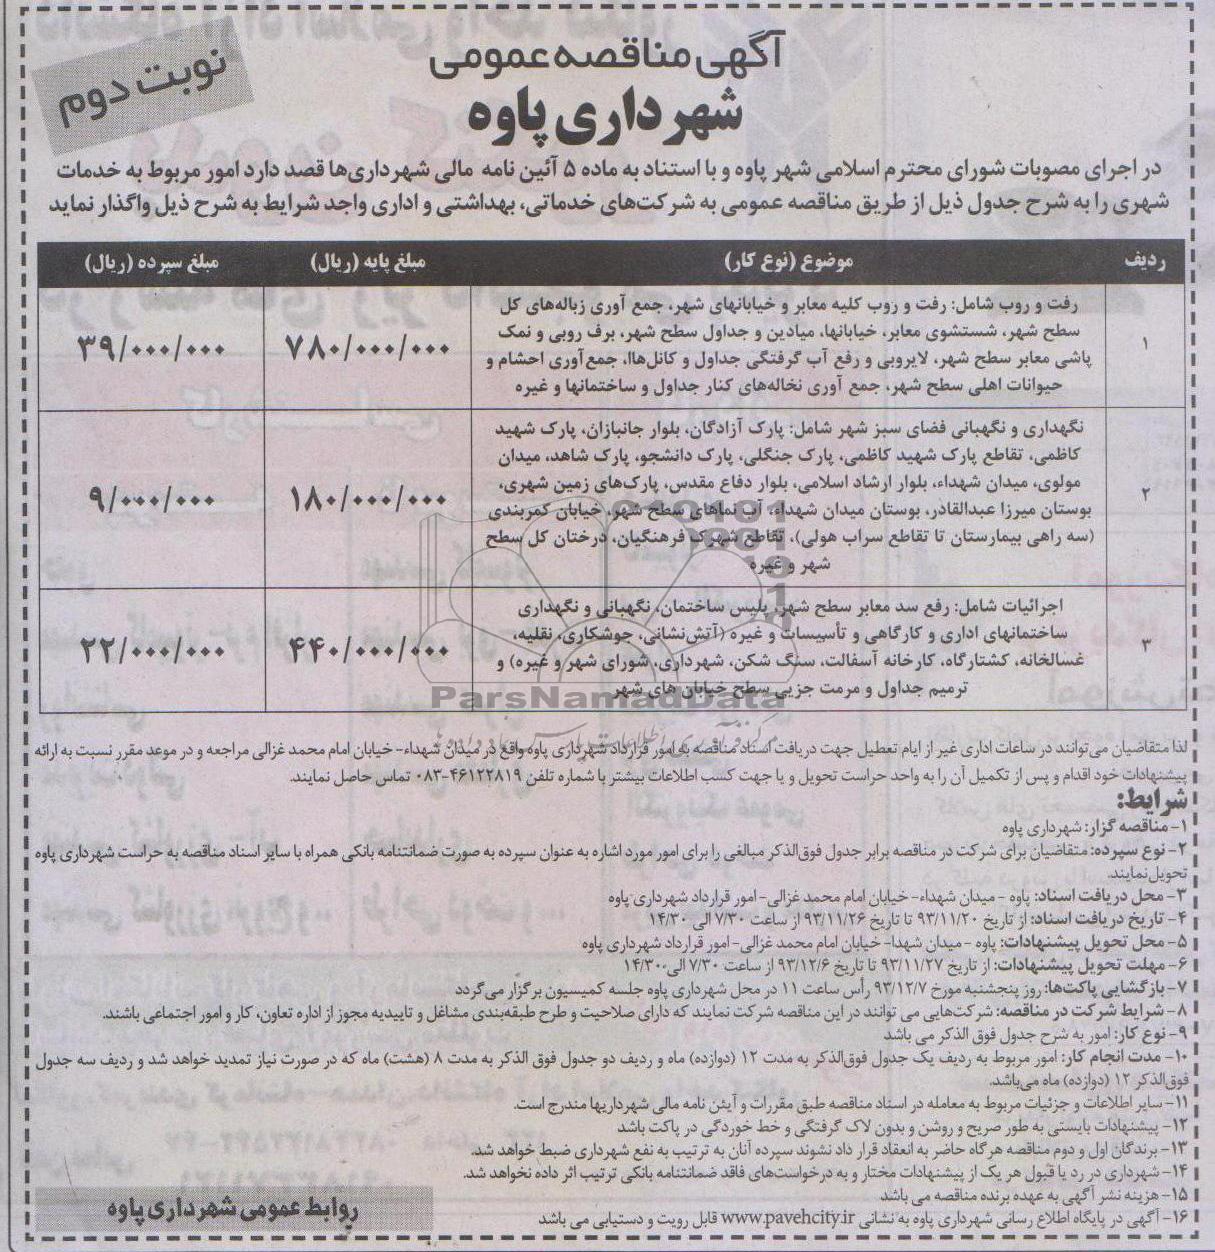 آگهی مناقصه عمومی
نوبت دوم
شهرداری پاوه
در اجرای مصوبات شورای محترم اسلامی شهر پاوه و با استناد به ماده ۵ آئین نامه مالی شهرداری‌ها قصد دارد امور مربوط به خدمات
شهری را به شرح جدول ذیل از طریق مناقصه عمومی به شرکت‌های خدماتی، بهداشتی و اداری واجد شرایط به شرح ذیل واگذار نماید
ردیف موضوع (نوع کار) مبلغ پایه (ریال) مبلغ سپرده (ریال)
رفت و روب شامل: رفت و روب کلیه معابر و خیابانهای شهر، جمع آوری زباله‌های کل
سطح شهر، شستشوی معابر، خیابانها، میادین و جداول سطح شهر، برف روبی و نمک
۱ ۷۸۰/۰۰۰/۰۰۰ ۳۹/۰۰۰/۰۰۰
پاشی معابر سطح شهر، لایروبی و رفع آب گرفتگی جداول و کانل‌هاا، جمع‌آوری احشام و
حیوانات اهلی سطح شهر، جمع آوری نخاله‌های کنار جداول و ساختمانها و غیره
نگهداری و نگهبانی فضای سبز شهر شامل: پارک آزادگان، بلوار جانبازان، پارک شهید
کاظمی، تقاطع پارک شهید کاظمی، پارک جنگلی، پارک دانشجو، پارک شاهد، میدان
مولوی، میدان شهداء، بلوار ارشاد اسلامی، بلوار دفاع مقدس، پارک‌های زمین شهری،
۲ ۱۸۰/۰۰۰/۰۰۰ ۹/۰۰۰/۰۰۰
بوستان میرزا عبدالقادر، بوستان میدان شهداء، آب نماهای سطح شهر، خیابان کمربندی
(سه راهی بیمارستان تا تقاطع سراب هولی)، تقاطع شهرک فرهنگیان، درختان کل سطح
شهر و غیره
اجرائیات شامل: رفع سد معابر سطح شهر، پلیس ساختمان، نگهبانی و نگهداری
ساختمانهای اداری و کارگاهی و تأسیسات و غیره (آتش‌نشانی، جوشکاری، نقلیه،
۳ ۴۴۰/۰۰۰/۰۰۰ ۲۲/۰۰۰/۰۰۰
غسالخانه، کشتارگاه، کارخانه آسفالت، سنگ شکن، شهرداری، شورای شهر و غیره) و
ترمیم جداول و مرمت جزیی سطح خیابان های شهر
ParsNamadData
لذا متقاضیان می‌توانند در ساعات اداری غیر از ایام تعطیل جهت دریافت اسناد مناقصه به امور قرارداد شهرداری پاوه واقع در میدان شهداء- خیابان امام محمد غزالی مراجعه و در موعد مقرر نسبت به ارائه
پیشنهادات خود اقدام و پس از تکمیل آن را به واحد حراست تحویل و یا جهت کسب اطلاعات بیشتر با شماره تلفن ۴۶۱۲۲۸۱۹-۰۸۳ تماس حاصل نمایند.
شرایط:
۱- مناقصه گزار: شهرداری پاوه
۲- نوع سپرده: متقاضیان برای شرکت در مناقصه برابر جدول فوق‌الذکر مبالغی را برای امور مورد اشاره به عنوان سپرده به صورت ضمانتنامه بانکی همراه با سایر اسناد مناقصه به حراست شهرداری پاوه
تحویل نمایند.
۳- محل دریافت اسناد: پاوه - میدان شهداء- خیابان امام محمد غزالی- امور قرارداد شهرداری پاوه
۴- تاریخ دریافت اسناد: از تاریخ ۹۳/۱۱/۲۰ تا تاریخ ۹۳/۱۱/۲۶ از ساعت ۷/۳۰ الی ۱۴/۳۰
۵- محل تحویل پیشنهادات: پاوه - میدان شهدا- خیابان امام محمد غزالی- امور قرارداد شهرداری پاوه
۶- مهلت تحویل پیشنهادات: از تاریخ ۹۳/۱۱/۲۷ تا تاریخ ۹۳/۱۲/۶ از ساعت ۷/۳۰ الی ۱۴/۳۰
۷- بازگشایی پاکت‌ها: روز پنجشنبه مورخ ۹۳/۱۲/۷ رأس ساعت ۱۱ در محل شهرداری پاوه جلسه کمیسیون برگزار می‌گردد
۸- شرایط شرکت در مناقصه: شرکت‌هایی می توانند در این مناقصه شرکت نمایند که دارای صلاحیت و طرح طبقه‌بندی مشاغل و تاییدیه مجوز از اداره تعاون، کار و امور اجتماعی باشند.
۹- نوع کار: امور به شرح جدول فوق الذکر می باشد
۱۰- مدت انجام کار: امور مربوط به ردیف یک جدول فوق‌الذکر به مدت ۱۲ (دوازده) ماه و ردیف دو جدول فوق الذکر به مدت ۸ (هشت) ماه که در صورت نیاز تمدید خواهد شد و ردیف سه جدول
فوق‌الذکر ۱۲ (دوازده) ماه می‌باشد.
۱۱- سایر اطلاعات و جزئیات مربوط به معامله در اسناد مناقصه طبق مقررات و آیئن نامه مالی شهرداریها مندرج است.
۱۲- پیشنهادات بایستی به طور صریح و روشن و بدون لاک گرفتگی و خط خوردگی در پاکت باشد
۱۳- برندگان اول و دوم مناقصه هرگاه حاضر به انعقاد قرار داد نشوند سپرده آنان به ترتیب به نفع شهرداری ضبط خواهد شد.
۱۴- شهرداری در رد یا قبول هر یک از پیشنهادات مختار و به درخواست‌های فاقد ضمانتنامه بانکی ترتیب اثر داده نخواهد شد.
۱۵- هزینه نشر آگهی به عهده برنده مناقصه می باشد
۱۶- آگهی در پایگاه اطلاع رسانی شهرداری پاوه به نشانی www.pavehcity.ir قابل رویت و دستیابی می باشد
روابط عمومی شهرداری پاوه